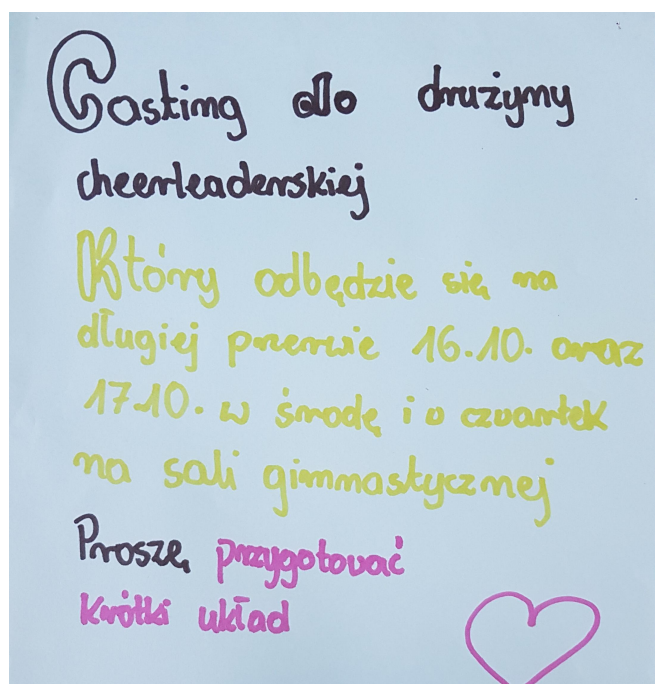 Casting do drużyny
cheerleaderskiej
Który odbędzie się na
długiej przerwie 16.10. oraz
17.10. w środę i w czwartek
na sali gimnastycznej
Proszę przygotować
krótki układ